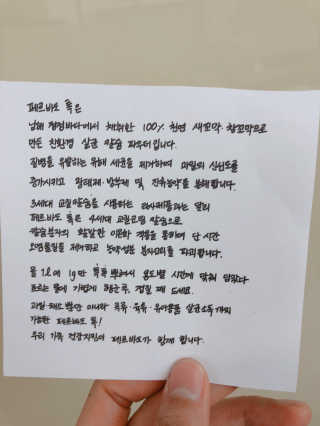 페르바토 톡은
남해 청정바다에서 채취한 100% 천연 새꼬막·참꼬막으로
만든 친환경 살균 칼슘 파우더입니다.
질병을 유발하는 유해 세균을 제거하며 과일의 신선도를
증가시키고 왁스제·방부제 및 잔류농약을 분해합니다.
3세대 교질칼슘을 사용하는 타사제품과는 달리
페르바토 톡은 4세대 교질이온 칼슘으로
칼슘분자의 활발한 이온화 작용을 통하여 단 시간
오염물질을 제거하고 농약성분 분자고리를 파괴합니다.
물 1L에 1g만 톡톡 뿌려서 용도별 시간에 맞춰 담궜다
흐르는 물에 가볍게 헹군 후, 껍질 째 드세요.
과일·채소 뿐만 아니라 곡류·육류·유아용품 살균소독까지
가능한 페르바토 톡!
우리 가족 건강지킴이 페르바토가 함께 합니다.